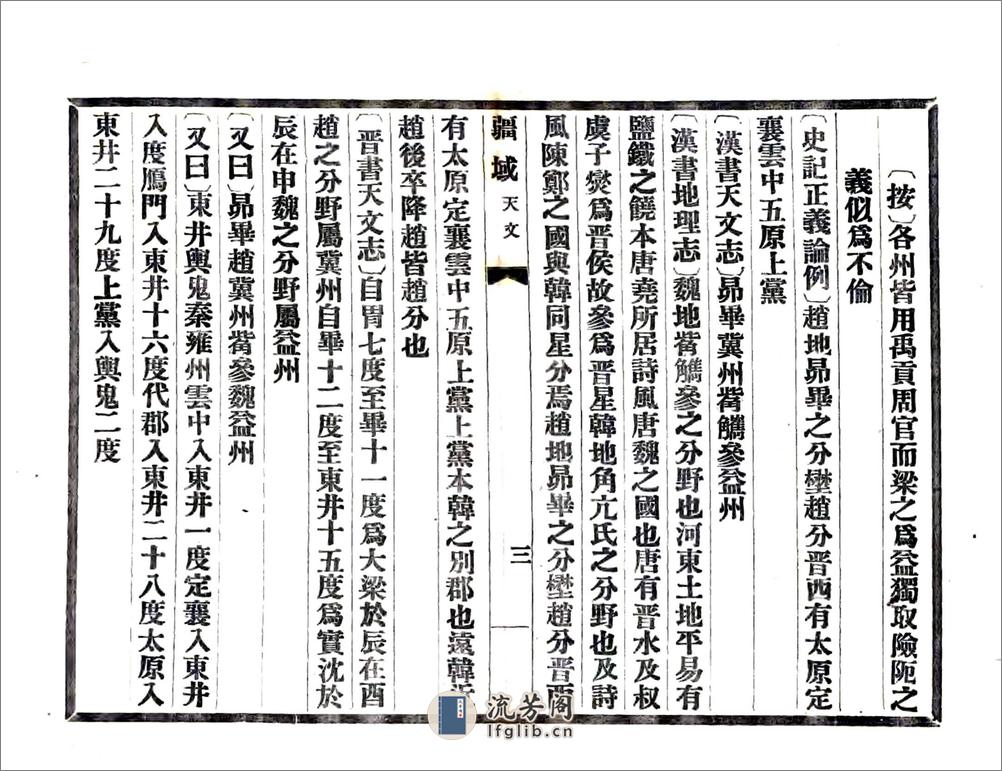 〔按〕各州皆用禹貢周官而梁之爲益獨取險阨之
義似爲不倫
〔史記正義論例〕趙地昴畢之分壄趙分晋西有太原定
襄雲中五原上黨
〔漢書天文志〕昴畢冀州觜觿參益州
〔漢書地理志〕魏地觜觿參之分野也河東土地平易有
鹽鐵之饒本唐堯所居詩風唐魏之國也唐有晋水及叔
虞子燮爲晋侯故參爲晋星韓地角亢氐之分野也及詩
風陳鄭之國與韓同星分焉趙地昴畢之分壄趙分晋西
疆域 天文 三
有太原定襄雲中五原上黨上黨本韓之別郡也遠韓近
趙後卒降趙皆趙分也
〔晋書天文志〕自胃七度至畢十一度爲大梁於辰在酉
趙之分野屬冀州自畢十二度至東井十五度爲實沈於
辰在申魏之分野屬益州
〔又曰〕昴畢趙冀州觜參魏益州
〔又曰〕東井輿鬼秦雍州雲中入東井一度定襄入東井
入度鴈門入東井十六度代郡入東井二十八度太原入
東井二十九度上黨入輿鬼二度
流芳阁
lfglib.cn